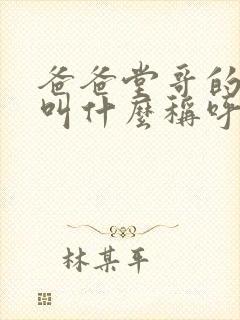 爸爸堂哥的
叫什麼稱呼
林某平